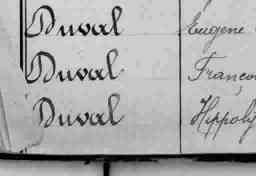 Duval Eugene
Duval Franço
Duval Hippoly